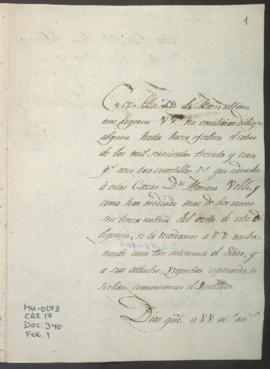 1
de Marzo ultimo
nos digeron VV. no omitirian diligª
alguna hasta hacer efectivo el cobro
de los mil seiscientos treinta y cinco
pˢ. tres y tres cuartillos rˢ que adeuda
á estas Caxas Dⁿ. Mariano Vello, y
como han mediado mas de dos meses
sin tener noticia del exito de esta di-
ligencia, se la recordamos á VV nueba
mente como tan interesante al Estado, y
a sus actuales urgencias esperando se
sirban comunicarnos el resultado.
Dios gūe. á VV mˢ. anˢ
MH-0173
CAJ 17
DOC. 340
FOL. 1